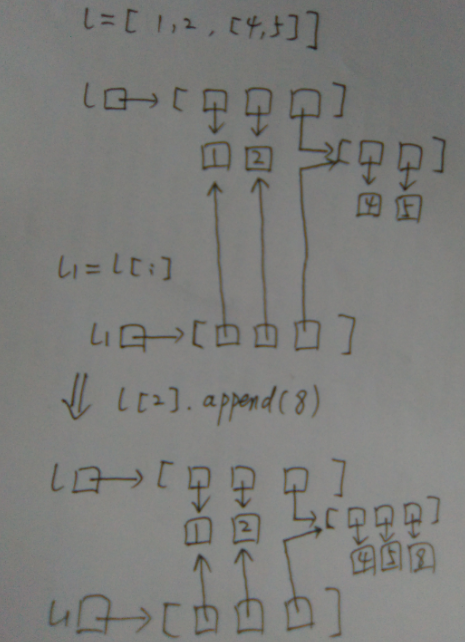 l=[1,2,[4,5]]
l → [ ]
1 2 [ ]
4 5
l1=l[:]
l1 → [ ]
⇓ l[2].append(8)
l → [ ]
1 2 [ ]
4 5 8
l1 → [ ]